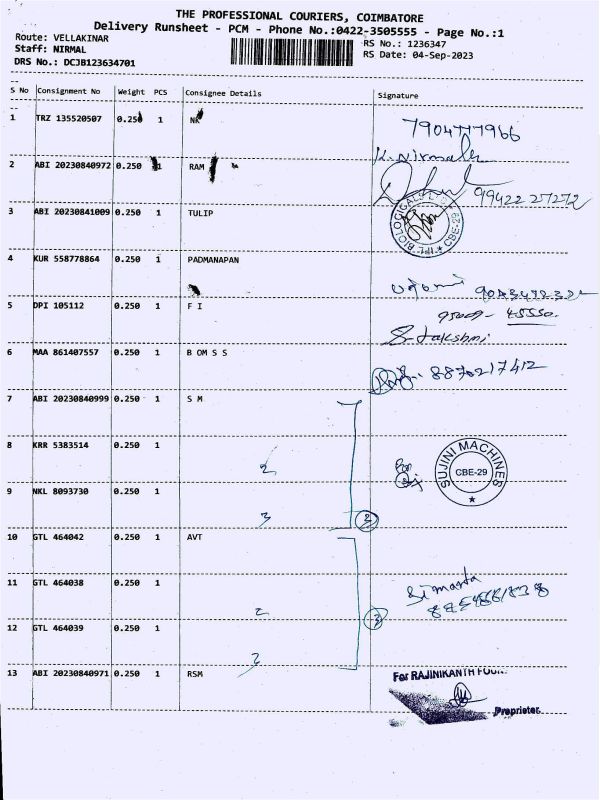 THE PROFESSIONAL COURIERS, COIMBATORE
Delivery Runsheet - PCM - Phone No.:0422-3505555 - Page No.:1
Route: VELLAKINAR
RS No.: 1236347
Staff: NIRMAL
RS Date: 04-Sep-2023
DRS No.: DCJB123634701
S No Consignment No Weight PCS Consignee Details Signature
1 TRZ 135520507 0.250 1
7904777966
K. Nirmala
2 ABI 20230840972 0.250 1 RAM
99422 27272
3 ABI 20230841009 0.250 1 TULIP
CBE-29
4 KUR 558778864 0.250 1 PADMANAPAN
5 DPI 105112 0.250 1 F I
95009- 45550.
S. Lakshmi
6 MAA 861407557 0.250 1 B OM S S
8870217412
7 ABI 20230840999 0.250 1 S M
8 KRR 5383514 0.250 1
2
SUJINI MACHINES
CBE-29
9 NKL 8093730 0.250 1
3
3
10 GTL 464042 0.250 1 AVT
11 GTL 464038 0.250 1
2
12 GTL 464039 0.250 1
3
3
13 ABI 20230840971 0.250 1 RSM
For RAJINIKANTH
Proprietor